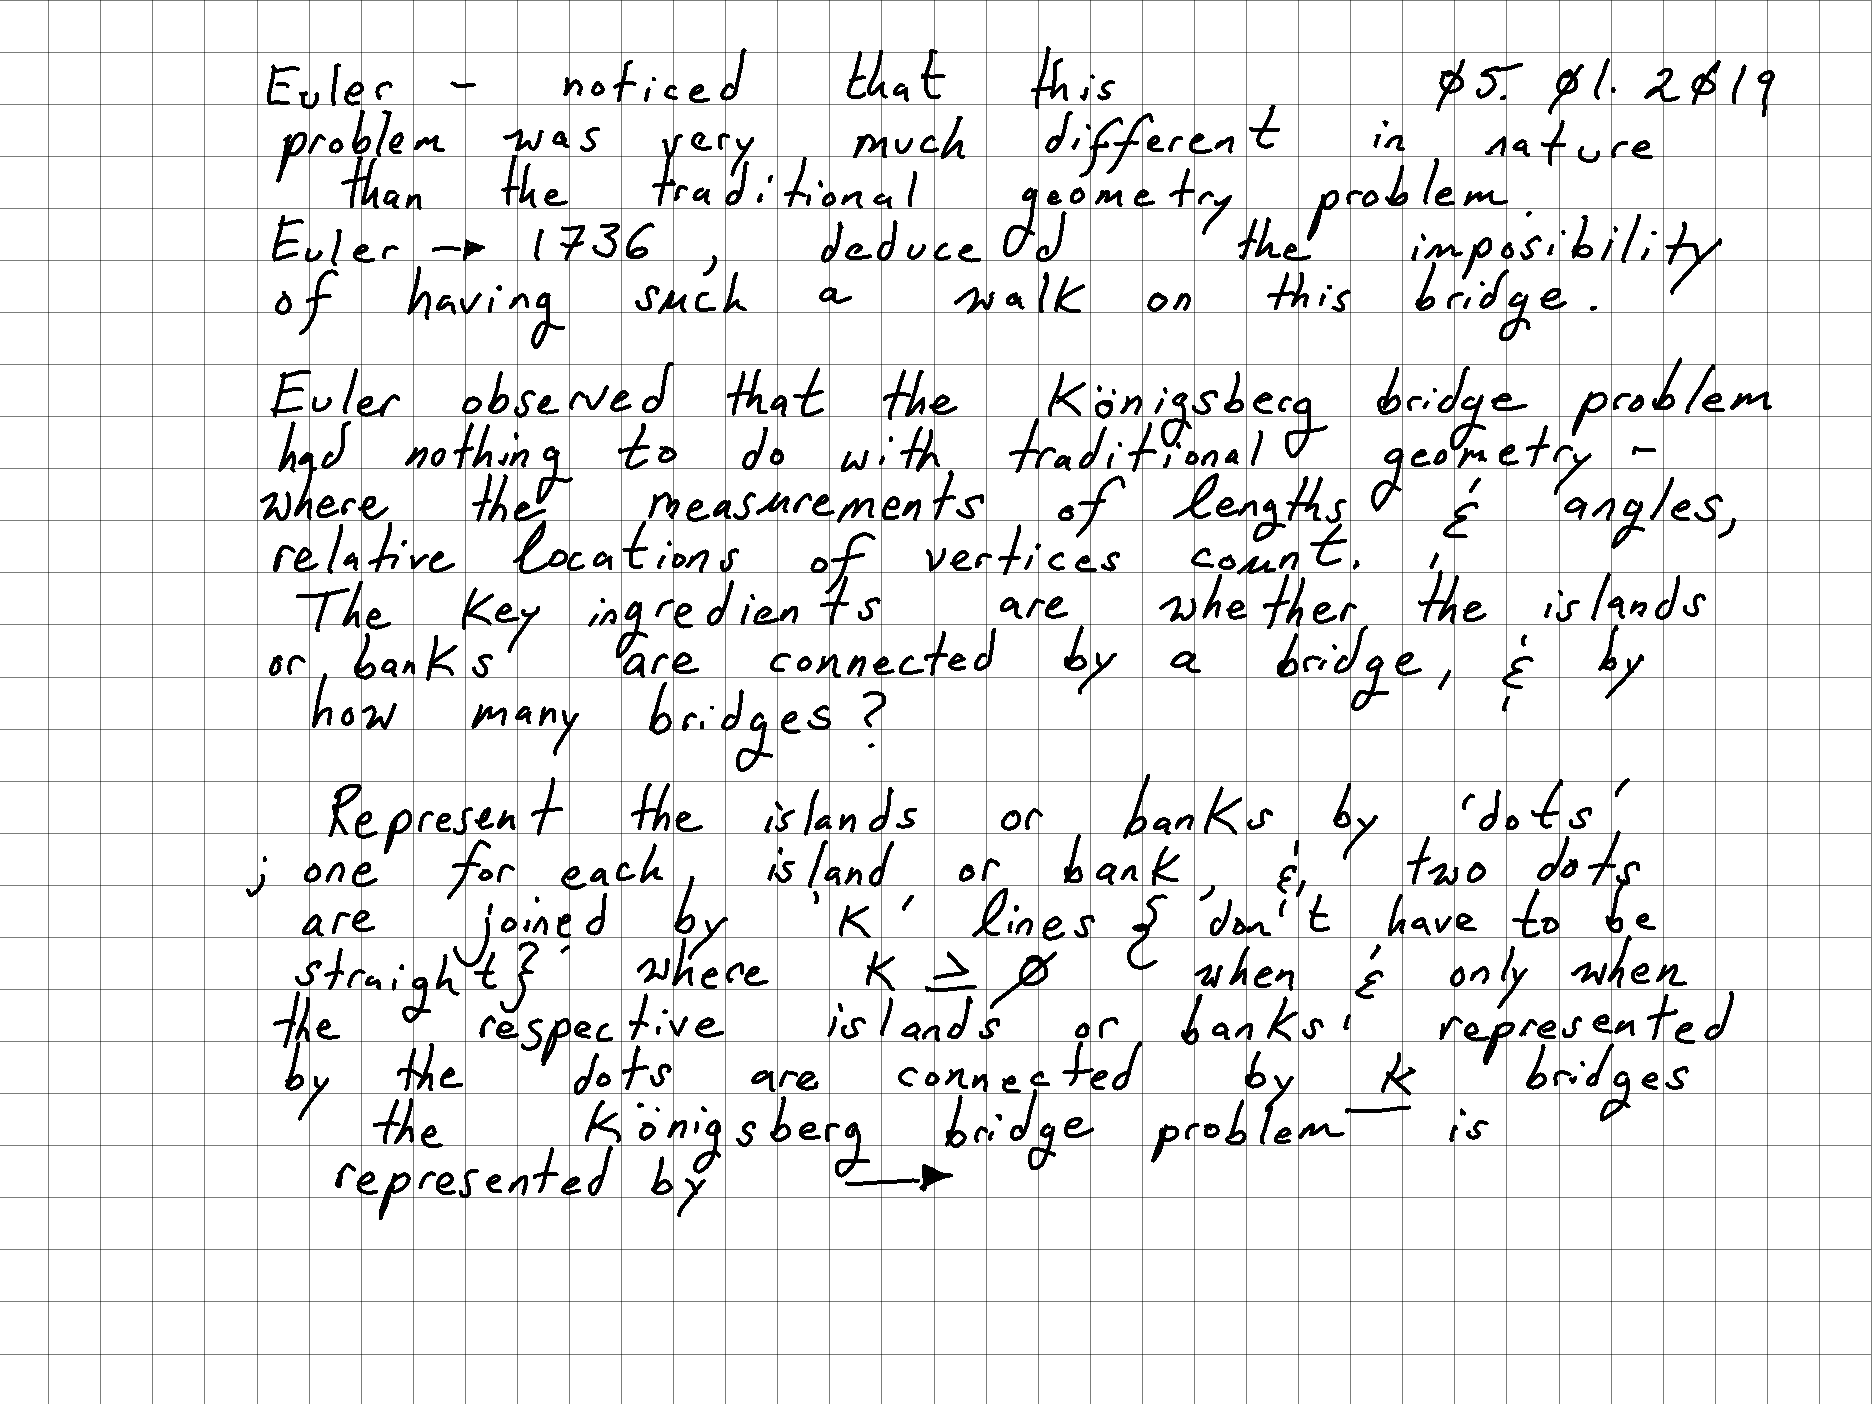 Euler - noticed that this 05. 01. 2019
problem was very much different in nature
than the traditional geometry problem.
Euler → 1736, deduced the imposibility
of having such a walk on this bridge.
Euler observed that the Königsberg bridge problem
had nothing to do with traditional geometry -
where the measurements of lengths & angles,
relative locations of vertices count.
The key ingredients are whether the islands
or banks are connected by a bridge, & by
how many bridges?
Represent the islands or banks by 'dots'
; one for each island or bank, & two dots
are joined by 'K' lines {don't have to be
straight} where K ≥ 0 when & only when
the respective islands or banks represented
by the dots are connected by K bridges
the Königsberg bridge problem is
represented by →